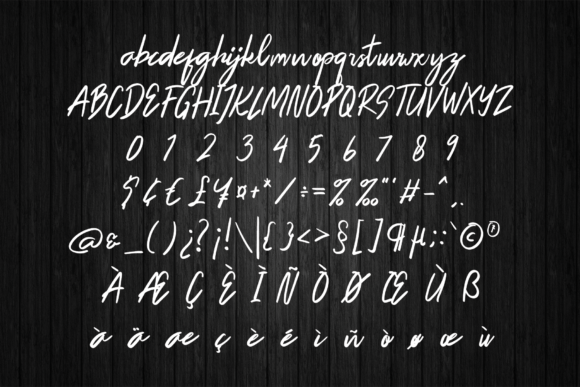 abcdefghijklmnopqrstuvwxyz
ABCDEFGHIJKLMNOPQRSTUVWXYZ
0 1 2 3 4 5 6 7 8 9
$ ¢ € £ ¥ ¤ + * / ÷ = % ‰ " ' # - ^ , .
@ & _ ( ) ¿ ? ¡ ! \ | { } < > § [ ] ¶ µ ; : ` © ®
À Æ Ç È Ì Ñ Ò Ø Œ Ù ß
à ä æ ç è é ì ñ ò ø œ ù